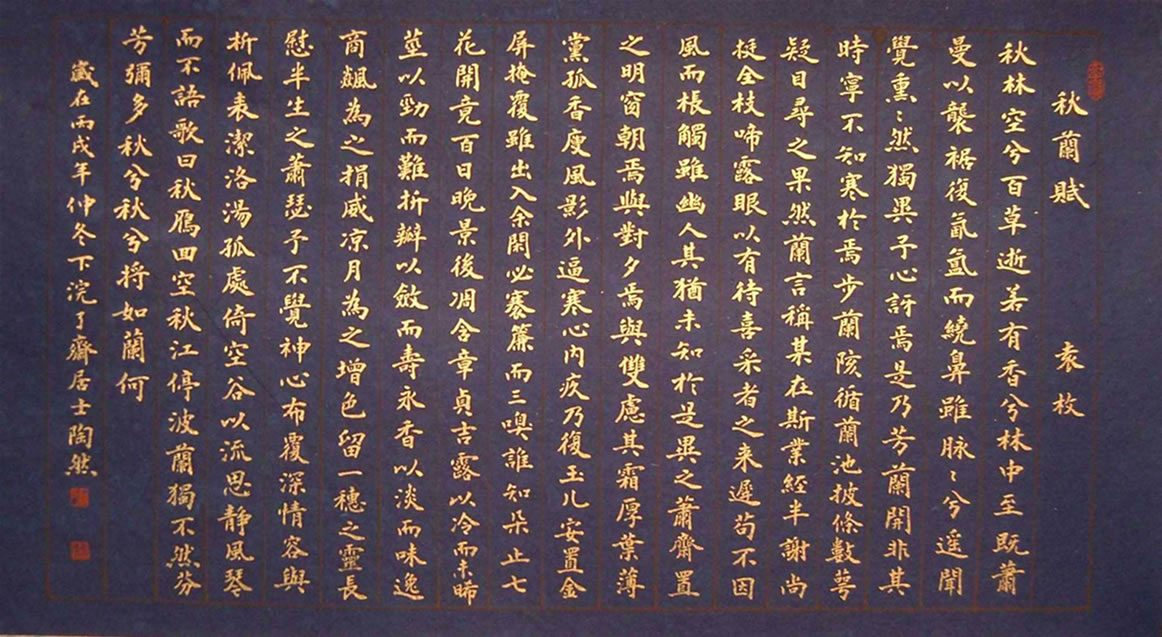 秋蘭賦 袁枚
秋林空兮百草逝若有香兮林中至既蕭
曼以襲裾復氤氳而繞鼻雖脉〻兮遥聞
覺熏〻然獨異予心訝焉是乃芳蘭開非其
時寧不知寒於焉步蘭陔循蘭池披條數萼
疑目尋之果然蘭言稱某在斯業經半謝尚
挺全枝啼露眼以有待喜采者之来遲苟不因
風而棖觸雖幽人其猶未知於是畀之蕭齋置
之明窗朝焉與對夕焉與雙慮其霜厚葉薄
黨孤香瘦風影外逼寒心内疚乃復玉几安置金
屏掩覆雖出入余閑必褰簾而三嗅誰知朵止七
花開竟百日晚景後凋含章貞吉露以冷而未晞
莖以勁而難折瓣以斂而壽永香以淡而味逸
商飆為之捐威凉月為之增色留一穗之靈長
慰半生之蕭瑟予不覺神心布覆深情容與
析佩表潔洛湯孤處倚空谷以流思静風琴
而不語歌曰秋雁回空秋江停波蘭獨不然芬
芳彌多秋兮秋兮将如蘭何
歲在丙戌年仲冬下浣了齋居士陶然